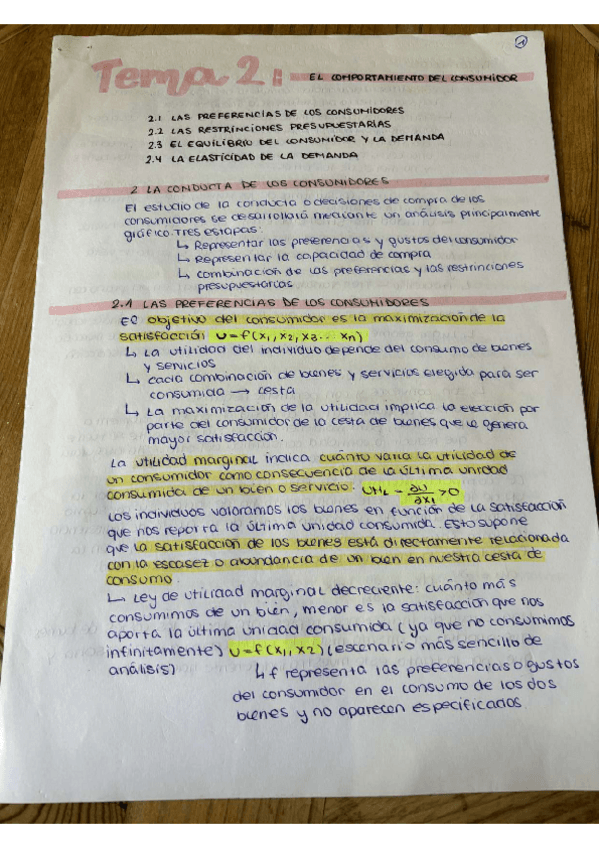 1
Tema 2: EL COMPORTAMIENTO DEL CONSUMIDOR
2.1 LAS PREFERENCIAS DE LOS CONSUMIDORES
2.2 LAS RESTRINCIONES PRESUPUESTARIAS
2.3 EL EQUILIBRIO DEL CONSUMIDOR Y LA DEMANDA
2.4 LA ELASTICIDAD DE LA DEMANDA
2 LA CONDUCTA DE LOS CONSUMIDORES
El estudio de la conducta o decisiones de compra de los
consumidores se desarrollará mediante un análisis principalmente
gráfico. Tres etapas:
↳ Representar las preferencias y gustos del consumidor
↳ Representar la capacidad de compra
↳ combinación de las preferencias y las restrinciones
presupuestarias
2.1 LAS PREFERENCIAS DE LOS CONSUMIDORES
El objetivo del consumidor es la maximización de la
satisfacción U=f(x1, x2, x3... xn)
↳ La utilidad del individuo depende del consumo de bienes
y servicios
↳ cada combinación de bienes y servicios elegida para ser
consumida → cesta
↳ La maximización de la utilidad implica la elección por
parte del consumidor de la cesta de bienes que le genera
mayor satisfacción.
La utilidad marginal indica cuánto varía la utilidad de
un consumidor como consecuencia de la última unidad
consumida de un bien o servicio: = ∂U/∂x1 >0
Los individuos valoramos los bienes en función de la satisfacción
que nos reporta la última unidad consumida. Esto supone
que la satisfacción de los bienes está directamente relacionada
con la escasez o abundancia de un bien en nuestra cesta de
consumo.
↳ Ley de utilidad marginal decreciente: cuánto más
consumimos de un bien, menor es la satisfacción que nos
aporta la última unidad consumida (ya que no consumimos
infinitamente) U=f(x1, x2) (escenario más sencillo de
análisis)
↳ f representa las preferencias o gustos
del consumidor en el consumo de los dos
bienes y no aparecen especificados